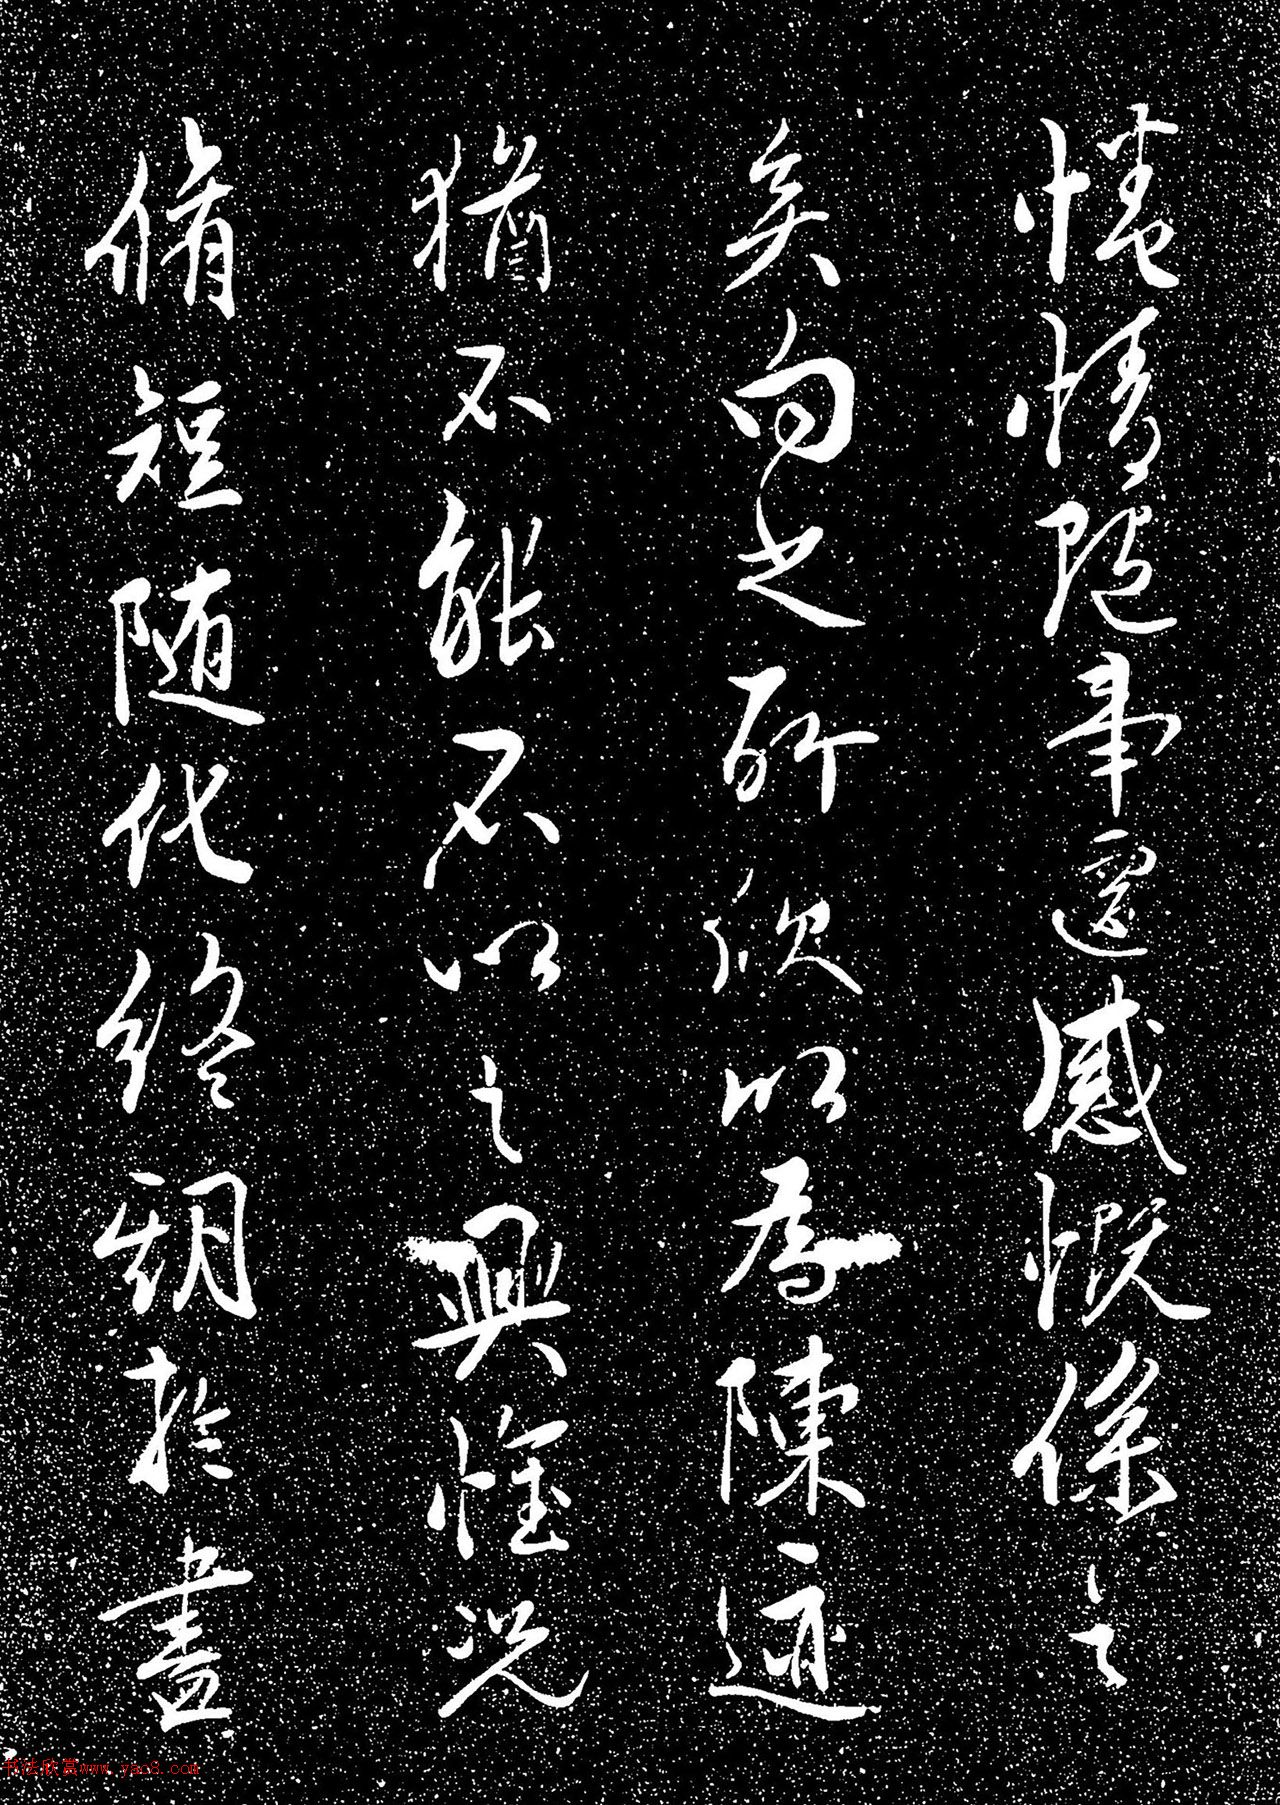 惓情随事遷感慨係之
矣向之所欣以為陳迹
猶不能不以之興懷况
脩短随化終期於盡
书法欣赏www.yac8.com